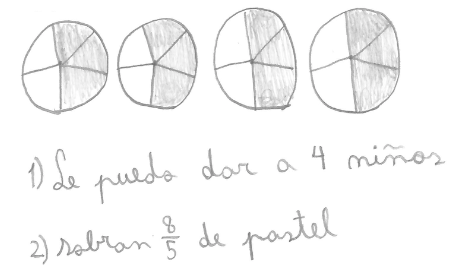 1) Le puedo dar a 4 niños
2) sobran 8/5 de pastel